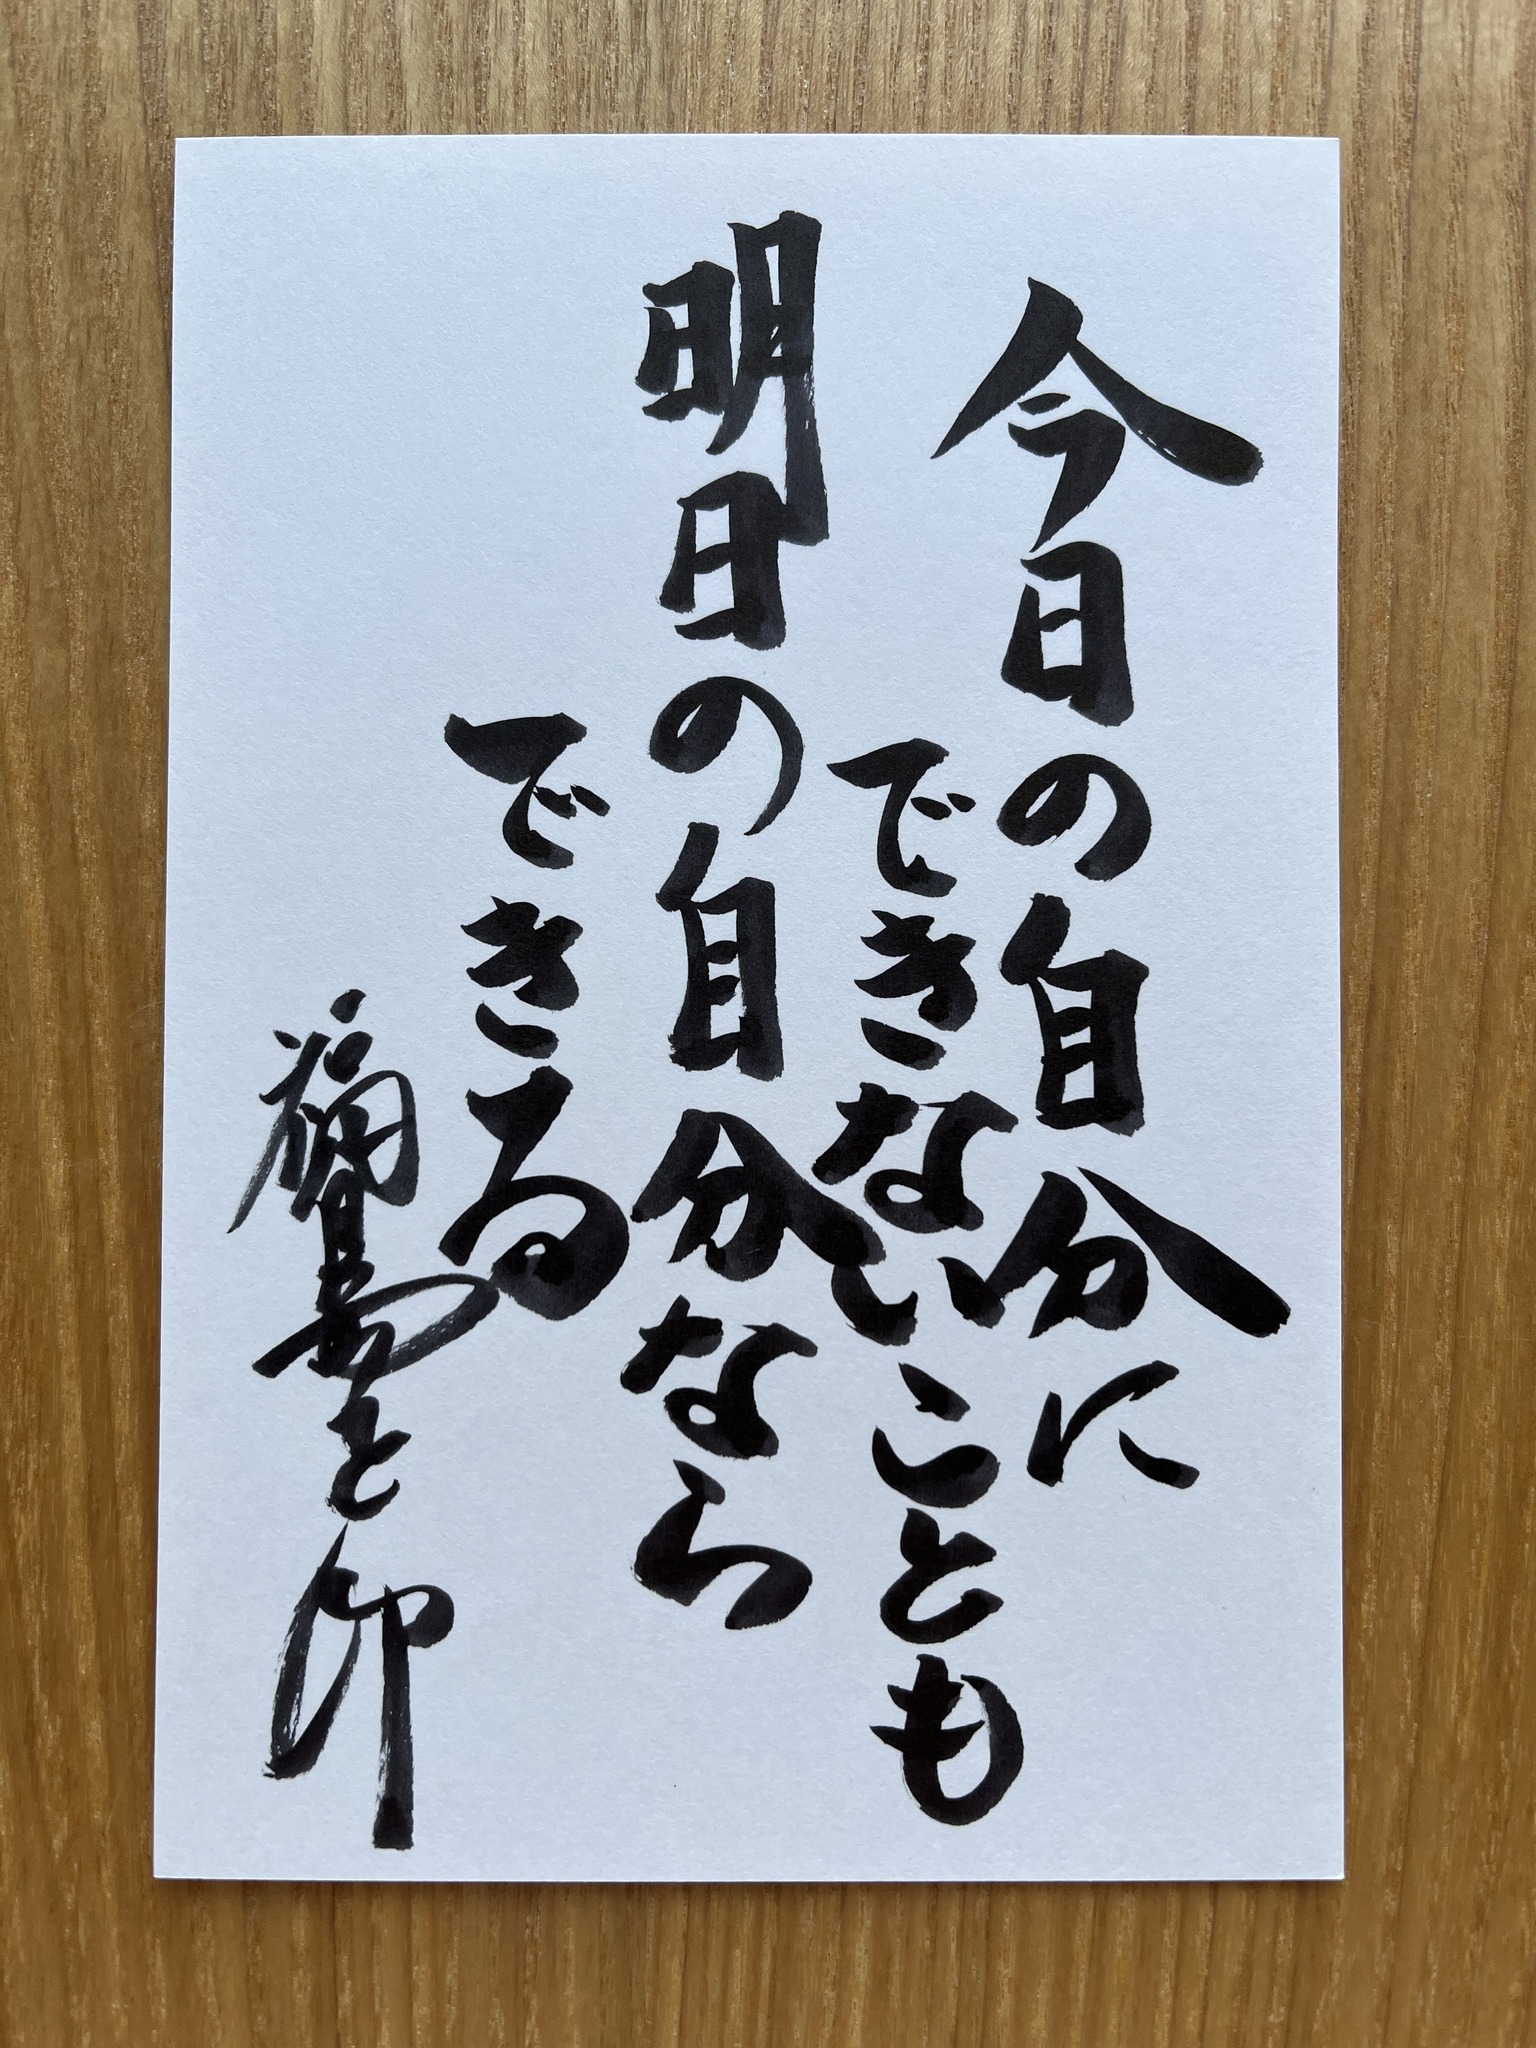 今日の自分に
できないことも
明日の自分なら
できる